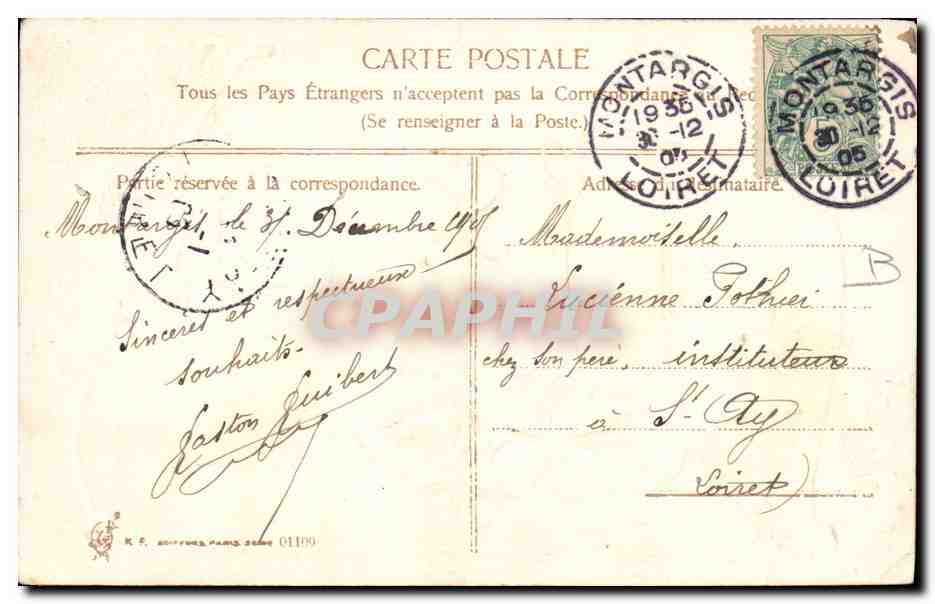 CARTE POSTALE
Tous les Pays Étrangers n'acceptent pas la Correspondance au Rec
(Se renseigner à la Poste.)
MONTARGIS
1935
30-12
05
LOIRET
MONTARGIS
1935
30-12
05
LOIRET
Partie réservée à la correspondance.
Adresse du destinataire.
Montargis, le 31 Décembre 1905
Sincères et respectueux
souhaits.
Gaston Guibert
Mademoiselle
Lucienne Pothier
chez son père, instituteur
à St Ay
Loiret)
B
CPAPHIL
K. F. EDITEURS PARIS SERIE 01109